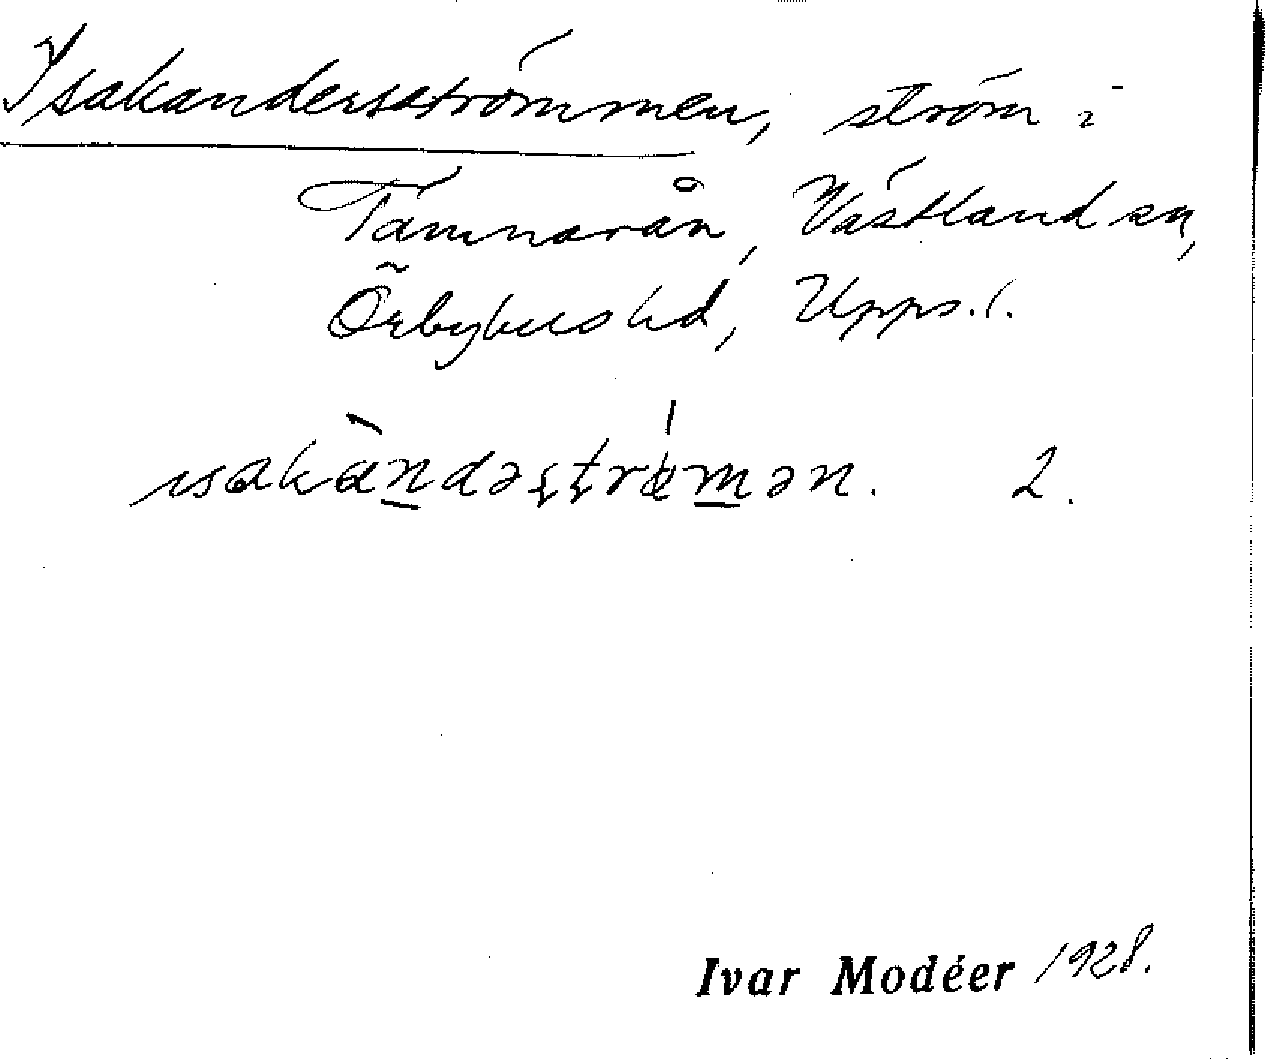 Isakandersströmmen, ström i
Tämnarån, Västland sn,
Örbyhus hd, Upps. l.
ısakàndəʂʈrǿmən. 2.
Ivar Modéer 1928.